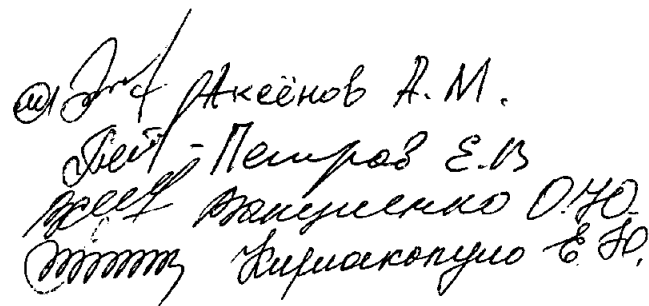 Аксёнов А.М.
- Петров Е.В
Вакуленко О.Ю.
Кириакопуло Е.Ю.